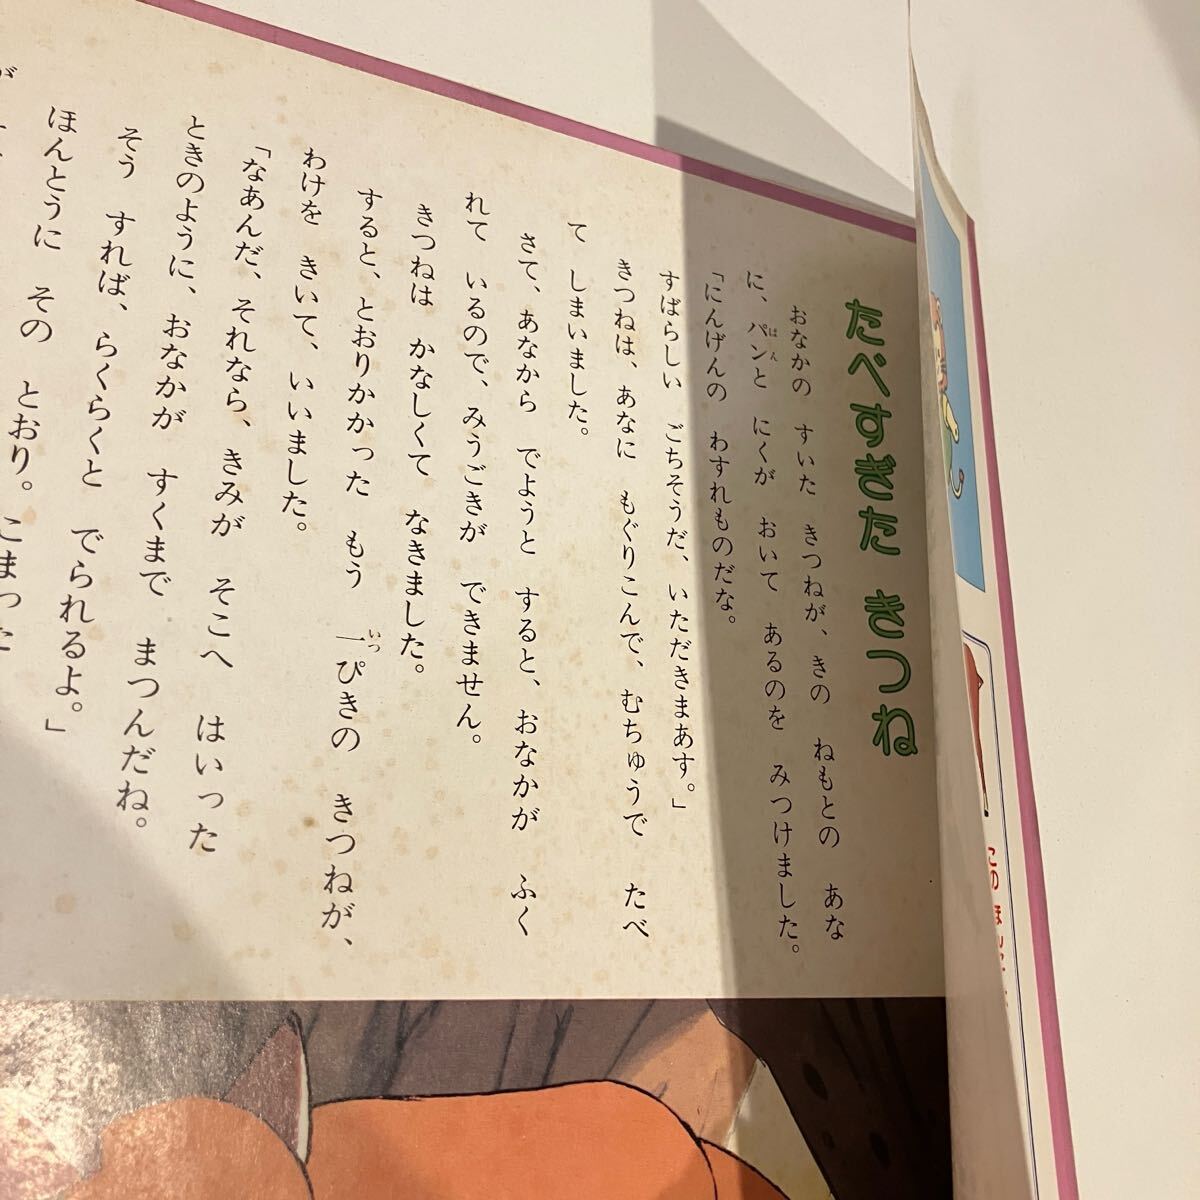 たべすぎた きつね
おなかの すいた きつねが、きの ねもとの あな
に、パンと にくが おいて あるのを みつけました。
「にんげんの わすれものだな。
すばらしい ごちそうだ、いただきまあす。」
きつねは、あなに もぐりこんで、むちゅうで たべ
て しまいました。
さて、あなから でようと すると、おなかが ふく
れて いるので、みうごきが できません。
きつねは かなしくて なきました。
すると、とおりかかった もう 一ぴきの きつねが、
わけを きいて、いいました。
「なあんだ、それなら、きみが そこへ はいった
ときのように、おなかが すくまで まつんだね。
そう すれば、らくらくと でられるよ。」
ほんとうに その とおり。こまった
が
この